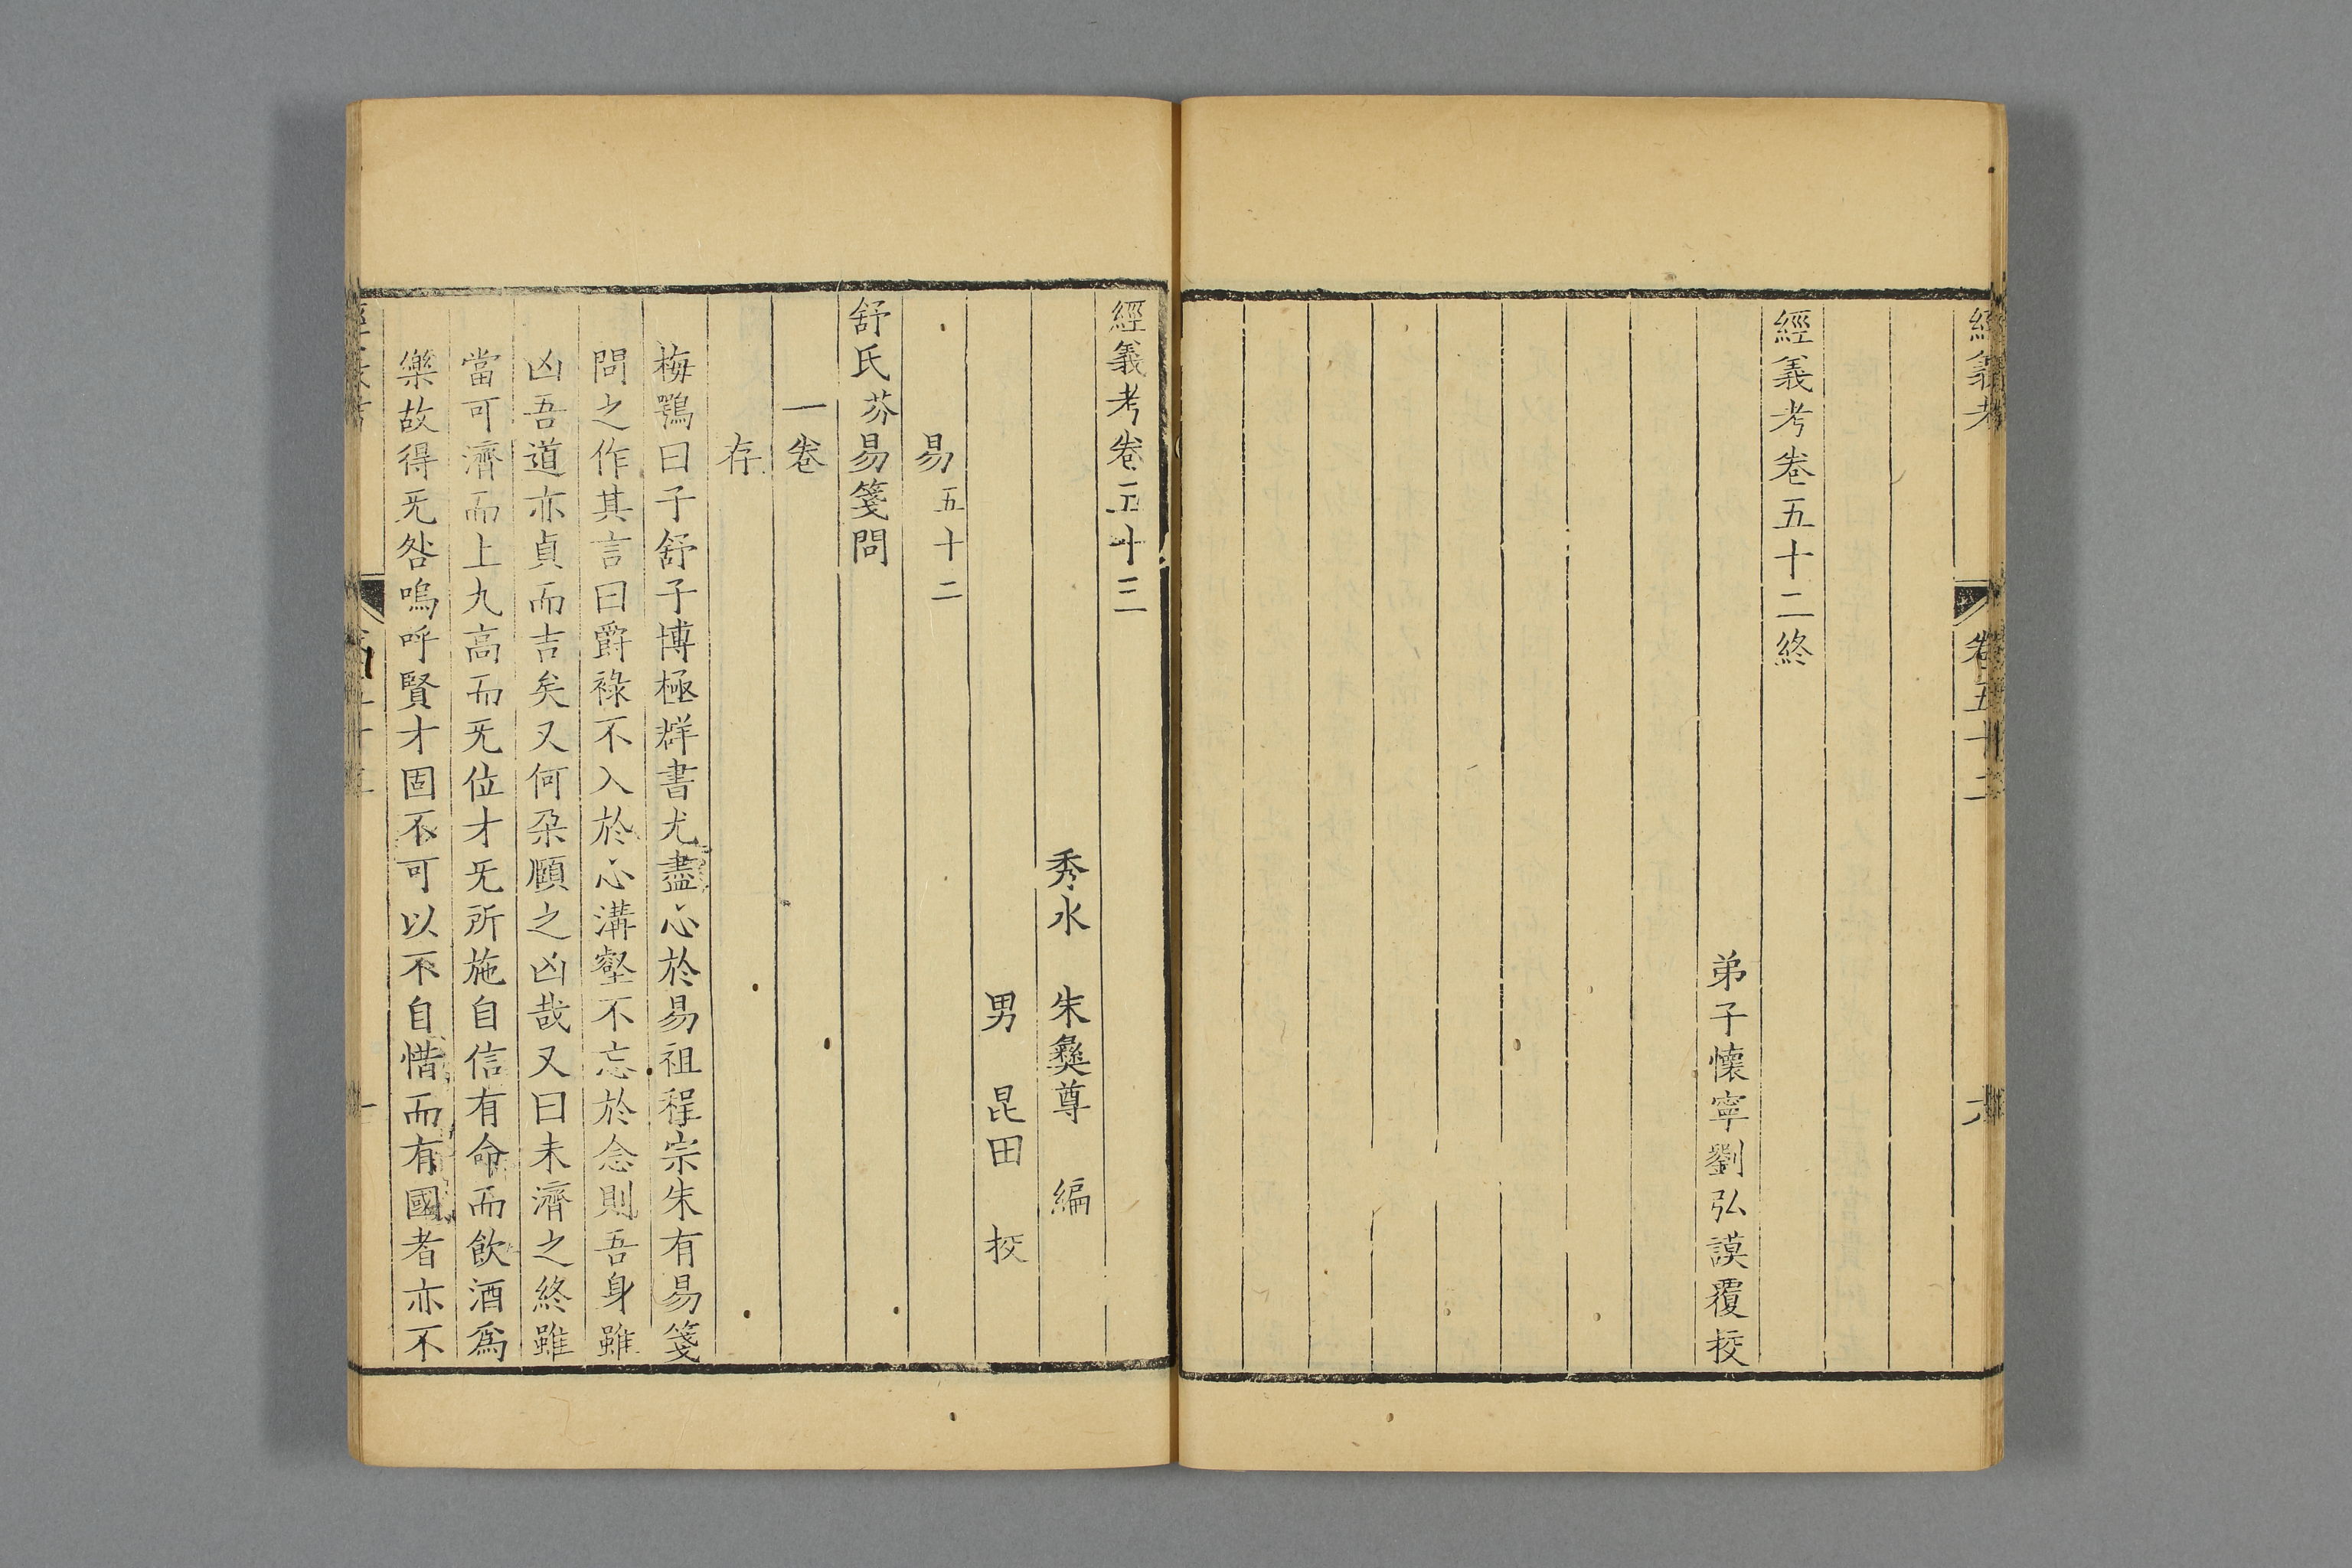 經義考
卷五十二
六
經義考卷五十二終
弟子懷寧劉弘謨覆挍
經義考卷五十三
秀水 朱彝尊 編
男 昆田 挍
易五十二
舒氏芬易箋問
一卷
存
梅鶚曰子舒子博極群書尤盡心於易祖程宗朱有易箋
問之作其言曰爵祿不入於心溝壑不忘於念則吾身雖
凶吾道亦貞而吉矣又何朶頤之凶哉又曰未濟之終雖
當可濟而上九高而旡位才旡所施自信有命而飲酒爲
樂故得旡咎嗚呼賢才固不可以不自惜而有國者亦不